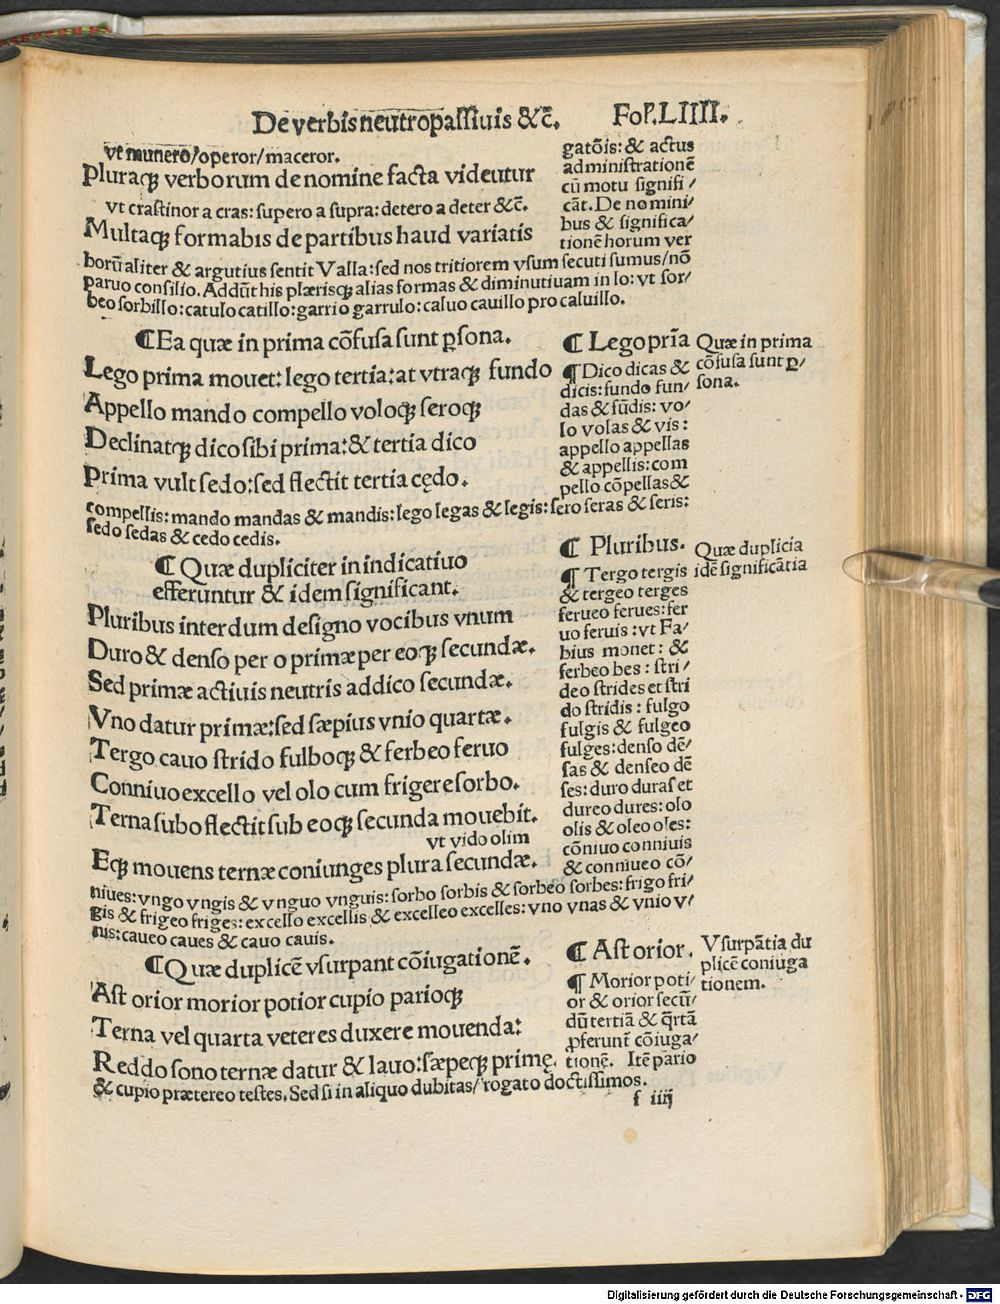 De verbis neutropassiuis &c̄. Fol. LIIII.
vt munero/operor/maceror.
Pluraqꝫ verborum de nomine facta videutur
vt crastinor a cras: supero a supra: detero a deter &c̄.
Multaqꝫ formabis de partibus haud variatis
gatōis: & actus
administrationē
cū motu signifi/
cāt. De nomini/
bus & significa/
tionē horum ver
borū aliter & argutius sentit Valla: sed nos tritiorem vsum secuti sumus/nō
paruo consilio. Addūt his plærisqꝫ alias formas & diminutiuam in lo: vt sor/
beo sorbillo: catulo catillo: garrio garrulo: caluo cauillo pro caluillo.
¶ Ea quæ in prima cōfusa sunt ꝑsona.
Lego prima mouet: lego tertia: at vtraqꝫ fundo
Appello mando compello voloqꝫ seroqꝫ
Declinatqꝫ dico sibi prima: & tertia dico
Prima vult sedo: sed flectit tertia cędo.
¶ Lego pria̅
¶ Dico dicas &
dicis: fundo fun/
das & fūdis: vo/
lo volas & vis:
appello appellas
& appellis: com
pello cōpellas &
compellis: mando mandas & mandis: lego legas & legis: sero seras & seris:
sedo sedas & cedo cedis.
Quæ in prima
cōfusa sunt ꝑ/
sona.
¶ Quæ dupliciter in indicatiuo
efferuntur & idem significant.
Pluribus interdum designo vocibus vnum
Duro & denso per o primæ per eoqꝫ secundæ.
Sed primæ actiuis neutris addico secundæ.
Vno datur primæ: sed sæpius vnio quartæ.
Tergo cauo strido fulboqꝫ & ferbeo feruo
Conniuo excello vel olo cum frigere sorbo.
Terna subo flectit sub eoqꝫ secunda mouebit.
vt vido olim
Eqꝫ mouens ternæ coniunges plura secundæ.
¶ Pluribus.
¶ Tergo tergis
& tergeo terges
ferueo ferues: fer
uo feruis: vt Fa/
bius monet: &
ferbeo bes: stri/
deo strides et stri
do stridis: fulgo
fulgis & fulgeo
fulges: denso dē/
sas & denseo dē
ses: duro duras et
dureo dures: olo
olis & oleo oles:
cōniuo conniuis
& conniueo cō/
niues: vngo vngis & vnguo vnguis: sorbo sorbis & sorbeo sorbes: frigo fri/
gis & frigeo friges: excello excellis & excelleo excelles: vno vnas & vnio v/
nis: caueo caues & cauo cauis.
Quæ duplicia
idē significātia
¶ Quæ duplicē vsurpant cōiugationē.
Ast orior morior potior cupio parioqꝫ
Terna vel quarta veteres duxere mouenda:
Reddo sono ternæ datur & lauo: sæpeqꝫ primę.
¶ Ast orior.
¶ Morior poti/
or & orior secū/
dū tertiā & q̄rtā
ꝓferunt̄ cōiuga/
tionę. Itē pario
& cupio prætereo testes. Sed si in aliquo dubitas/ rogato doctissimos.
Vsurpātia du
plicē coniuga
tionem.
f iiij
Digitalisierung gefördert durch die Deutsche Forschungsgemeinschaft - DFG